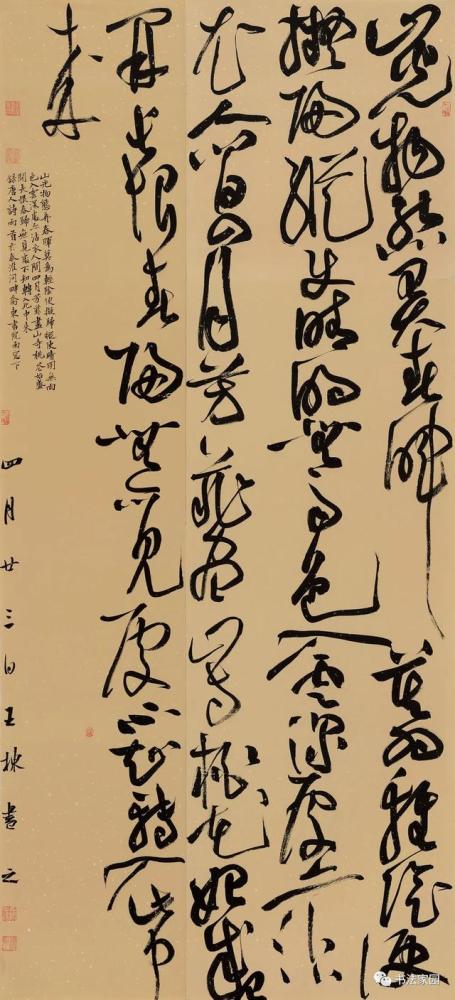 山光物態弄春暉莫為輕陰便
擬歸縱使晴明無雨色入雲深處亦沾
衣人間四月芳菲盡山寺桃花始盛
開長恨春歸無覓處不知轉入此中
來
山光物態弄春暉莫為輕陰便擬歸縱使晴明無雨
色入雲深處亦沾衣人間四月芳菲盡山寺桃花始盛
開長恨春歸無覓處不知轉入此中來
錄唐人詩兩首於秦淮河畔東書院南窗下
四月廿三日王棟書之
书法家园